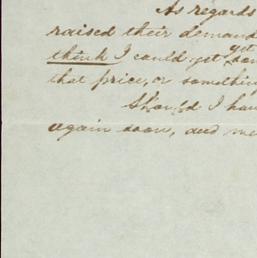 As regards
raised their demand
yet
think I could get
that price, or something
Should I have
again soon, and